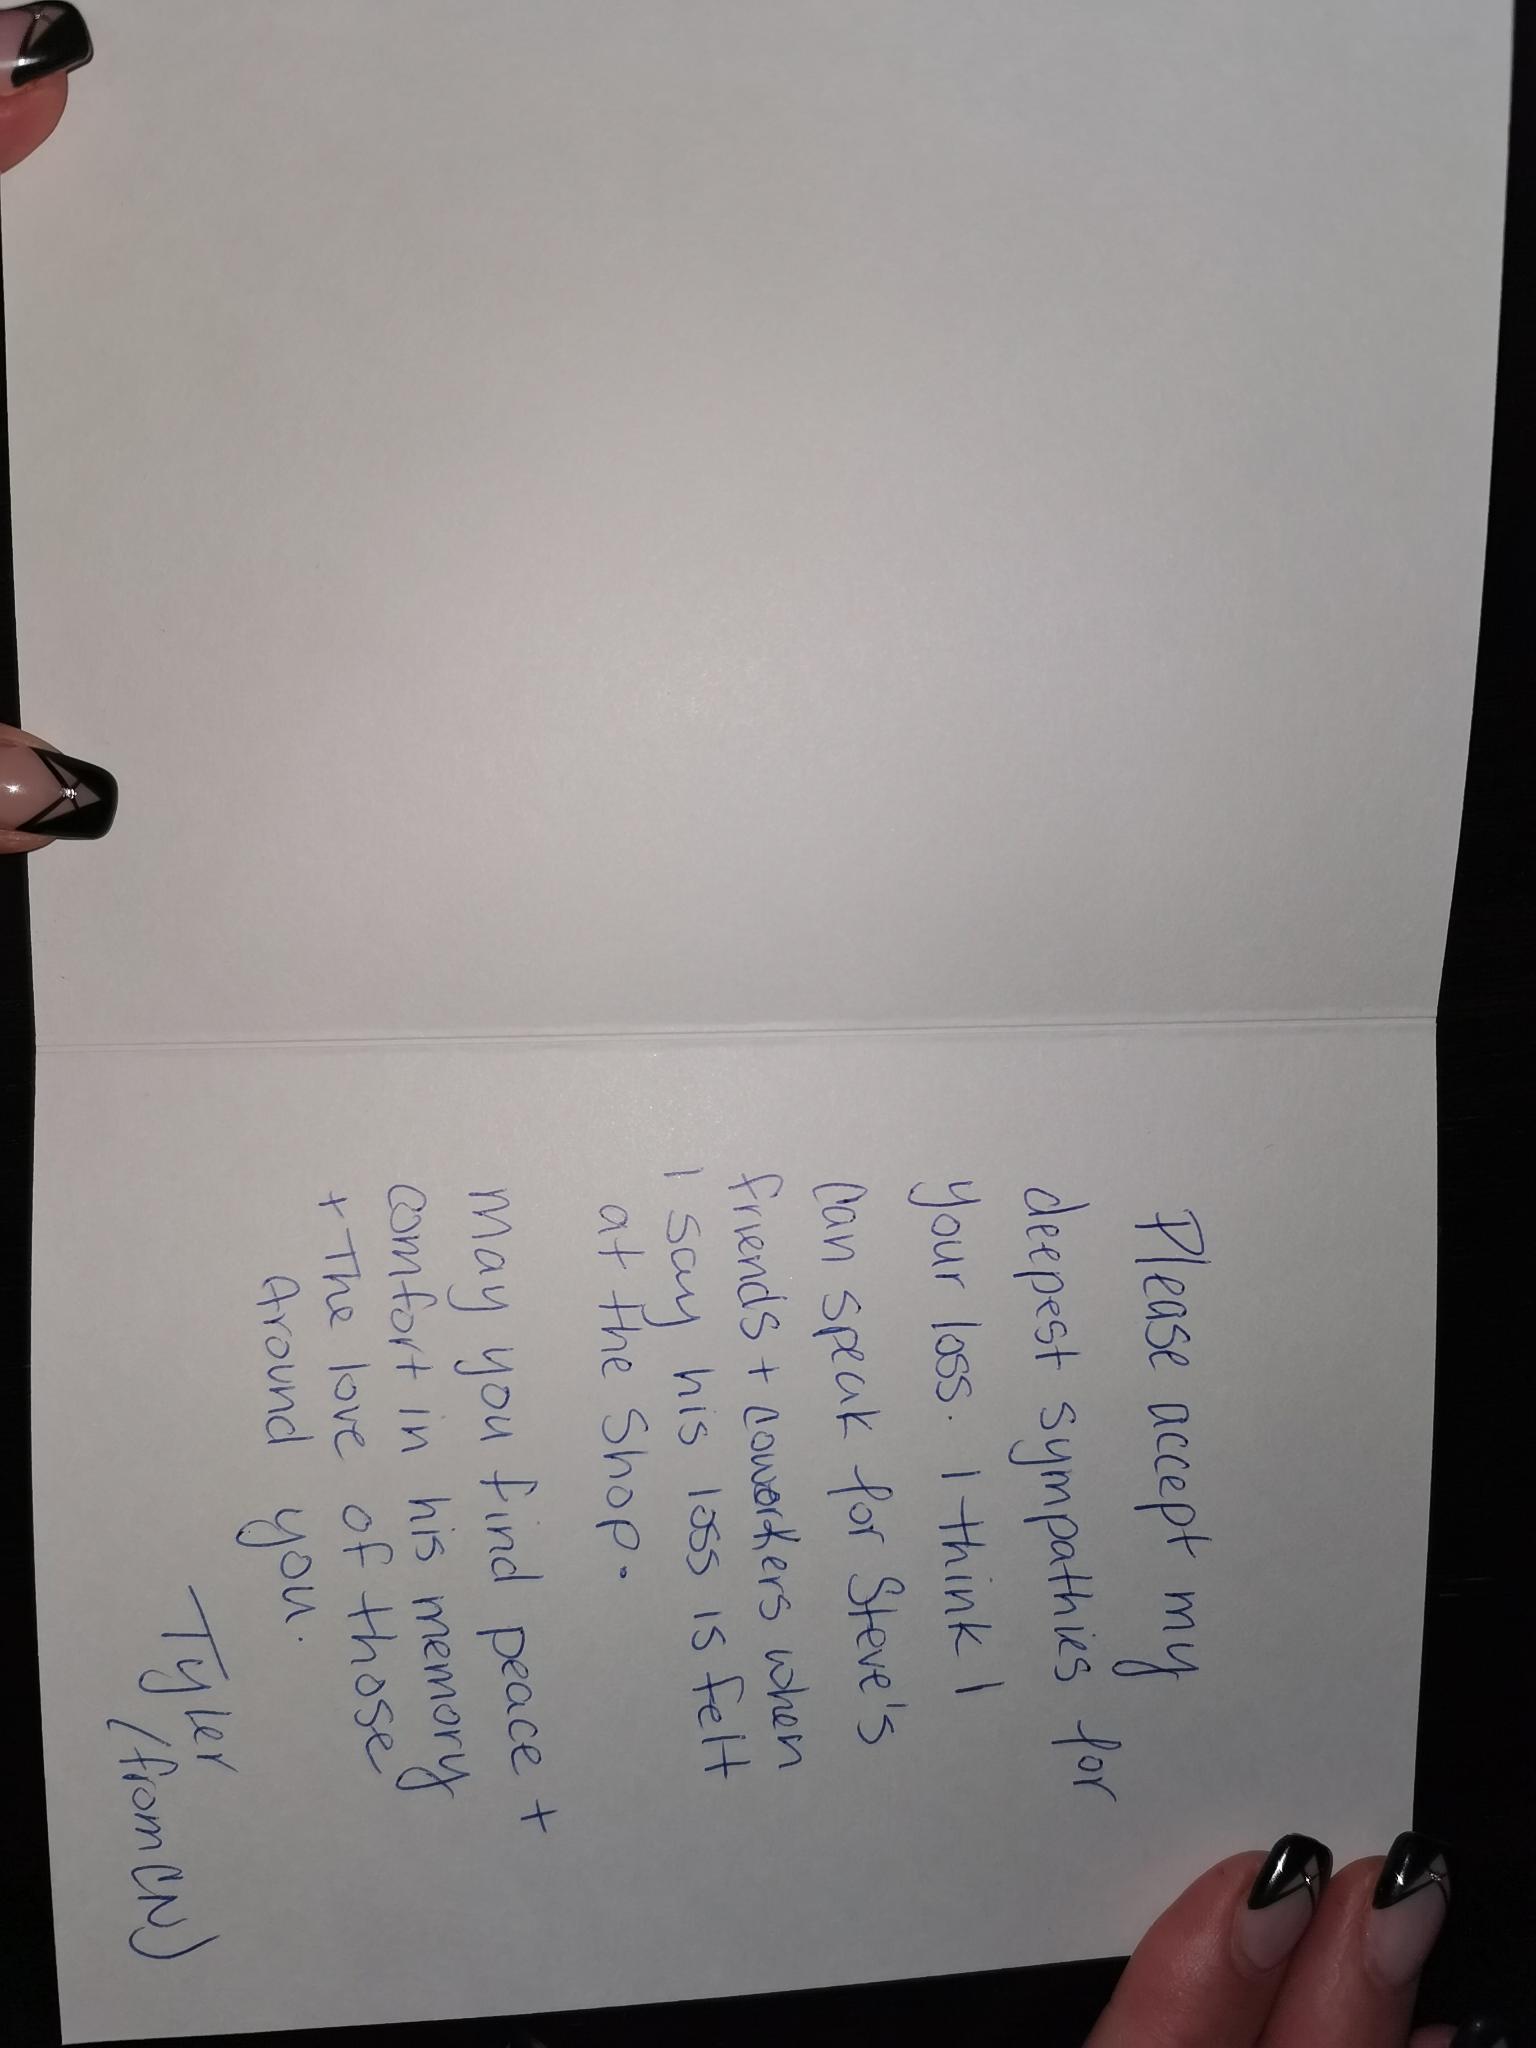 Please accept my
deepest sympathies for
your loss. I think I
can speak for Steve's
friends + coworkers when
I say his loss is felt
at the shop.
May you find peace +
comfort in his memory
+ The love of those
Around you.
Tyler
(from CN)